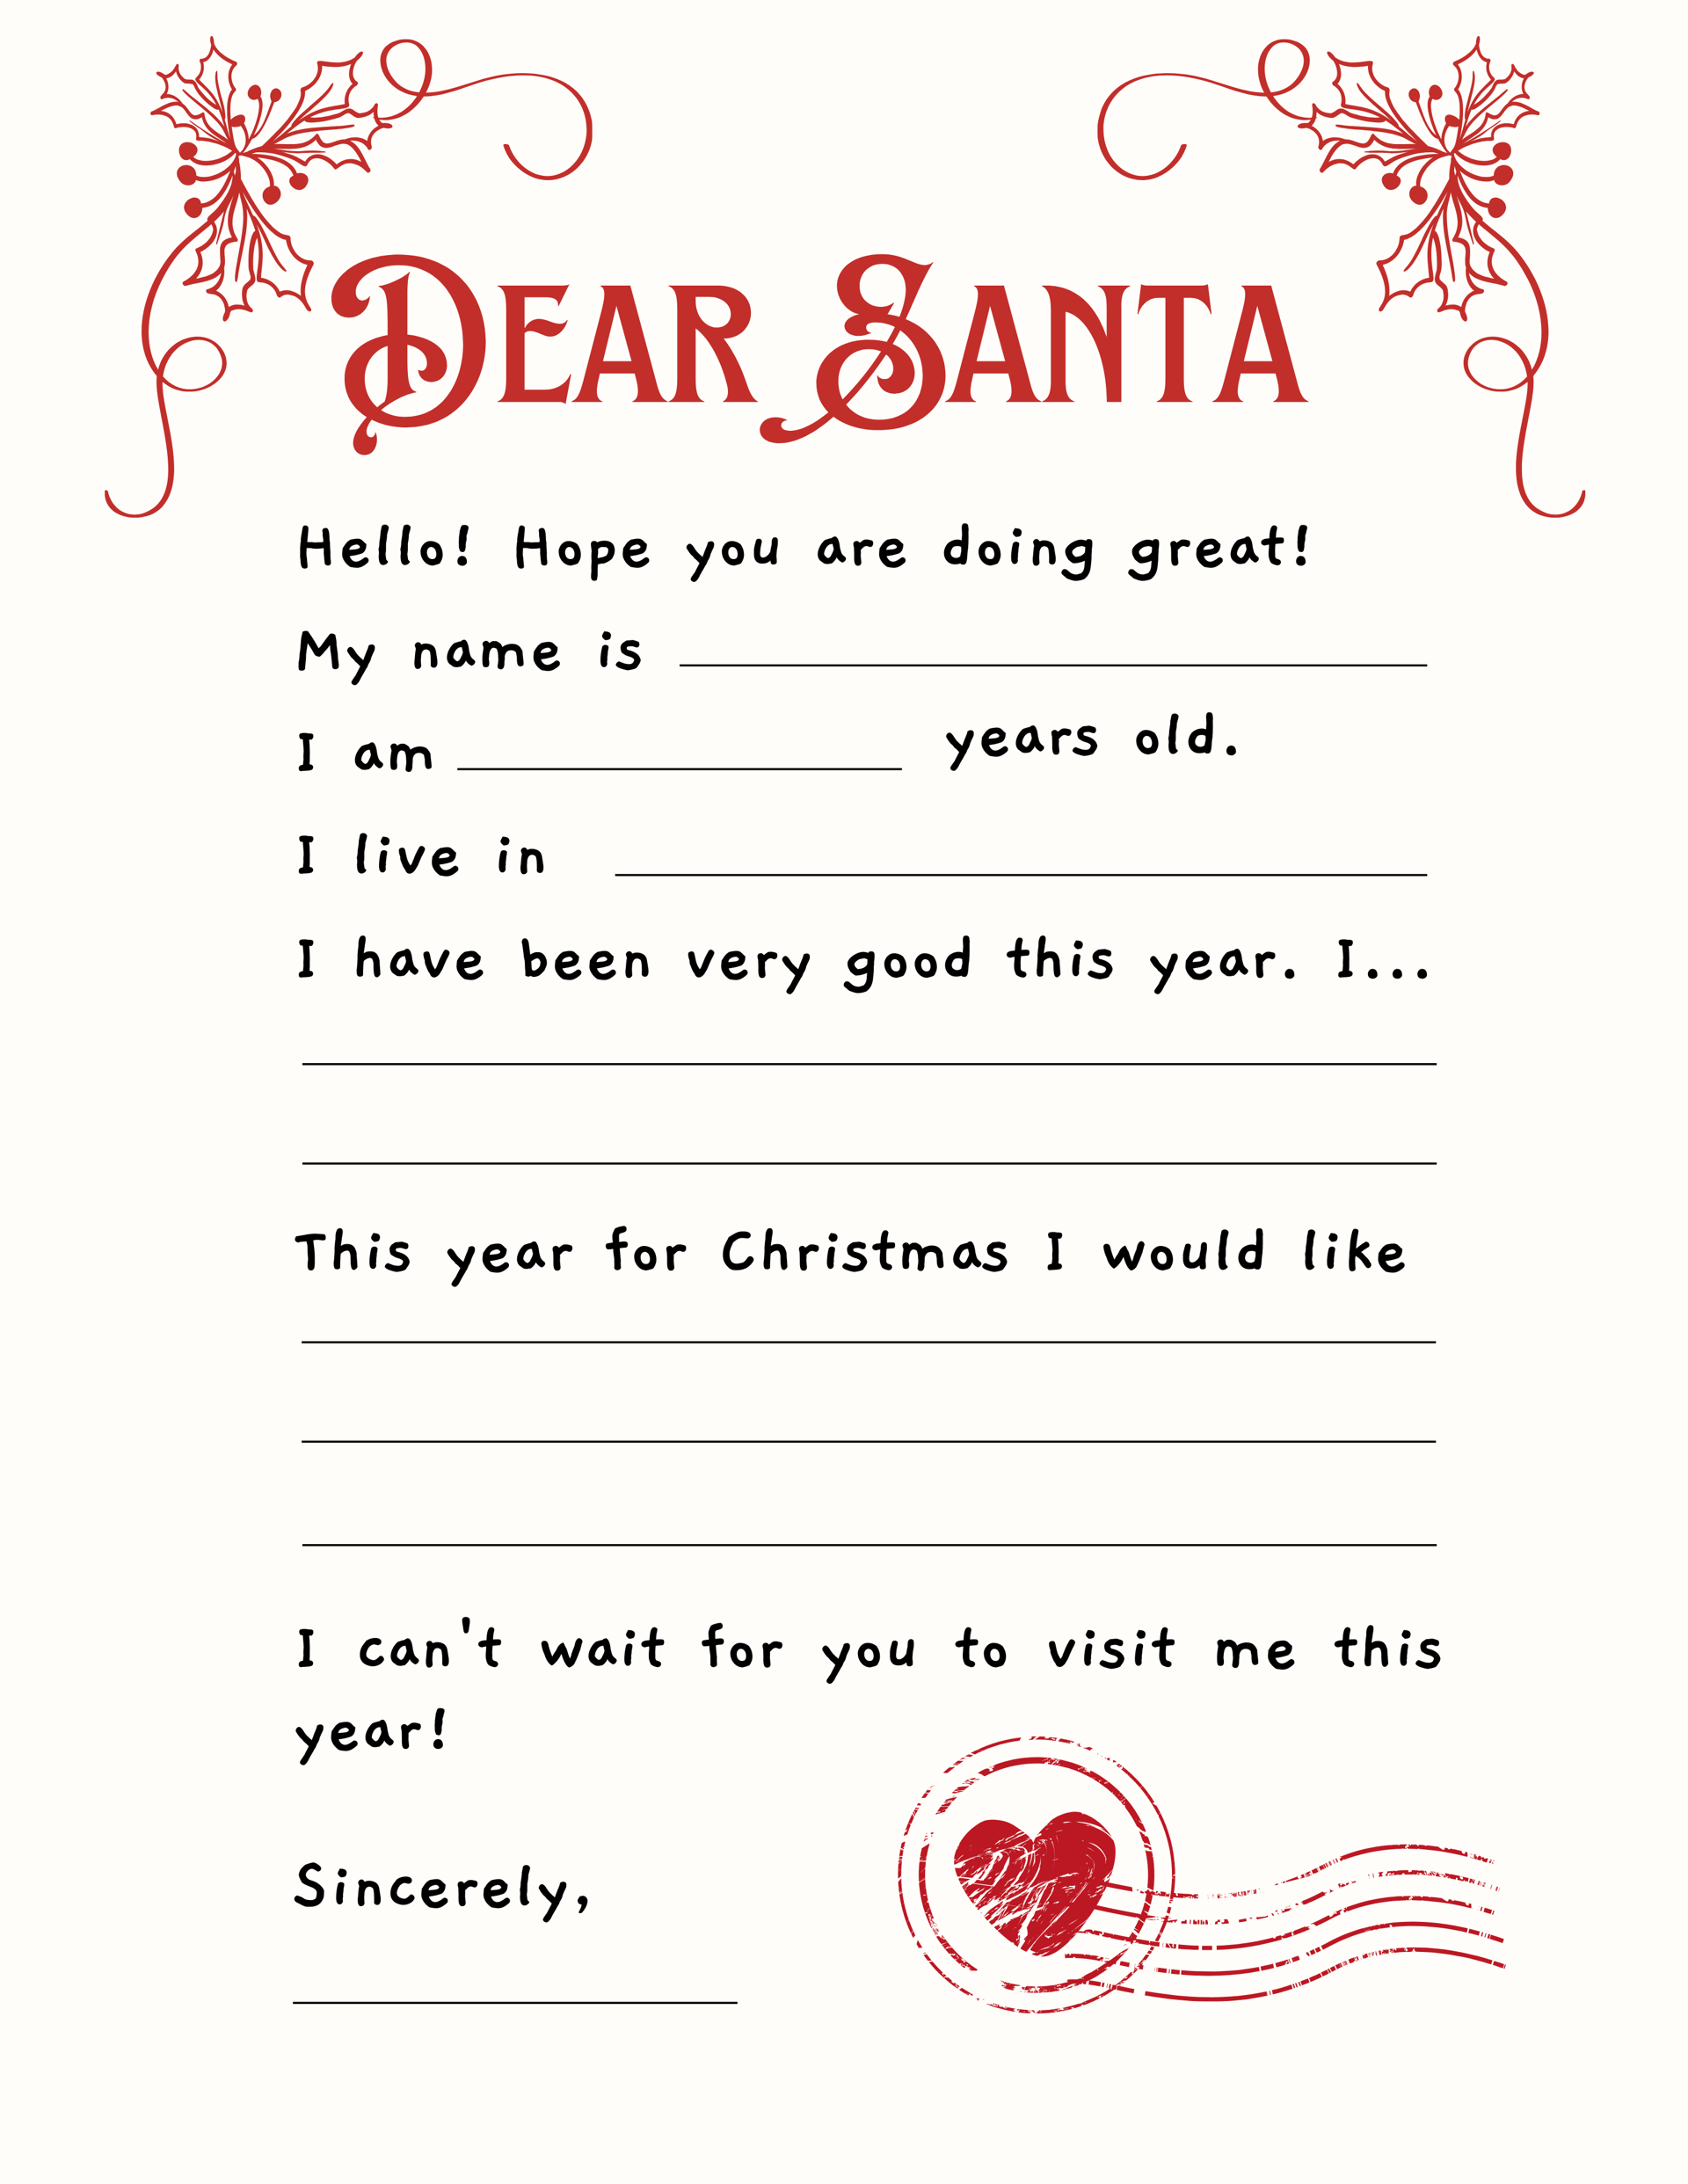 DEAR SANTA
Hello! Hope you are doing great!
My name is
I am years old.
I live in
I have been very good this year. I...
This year for Christmas I would like
I can't wait for you to visit me this
year!
Sincerely,